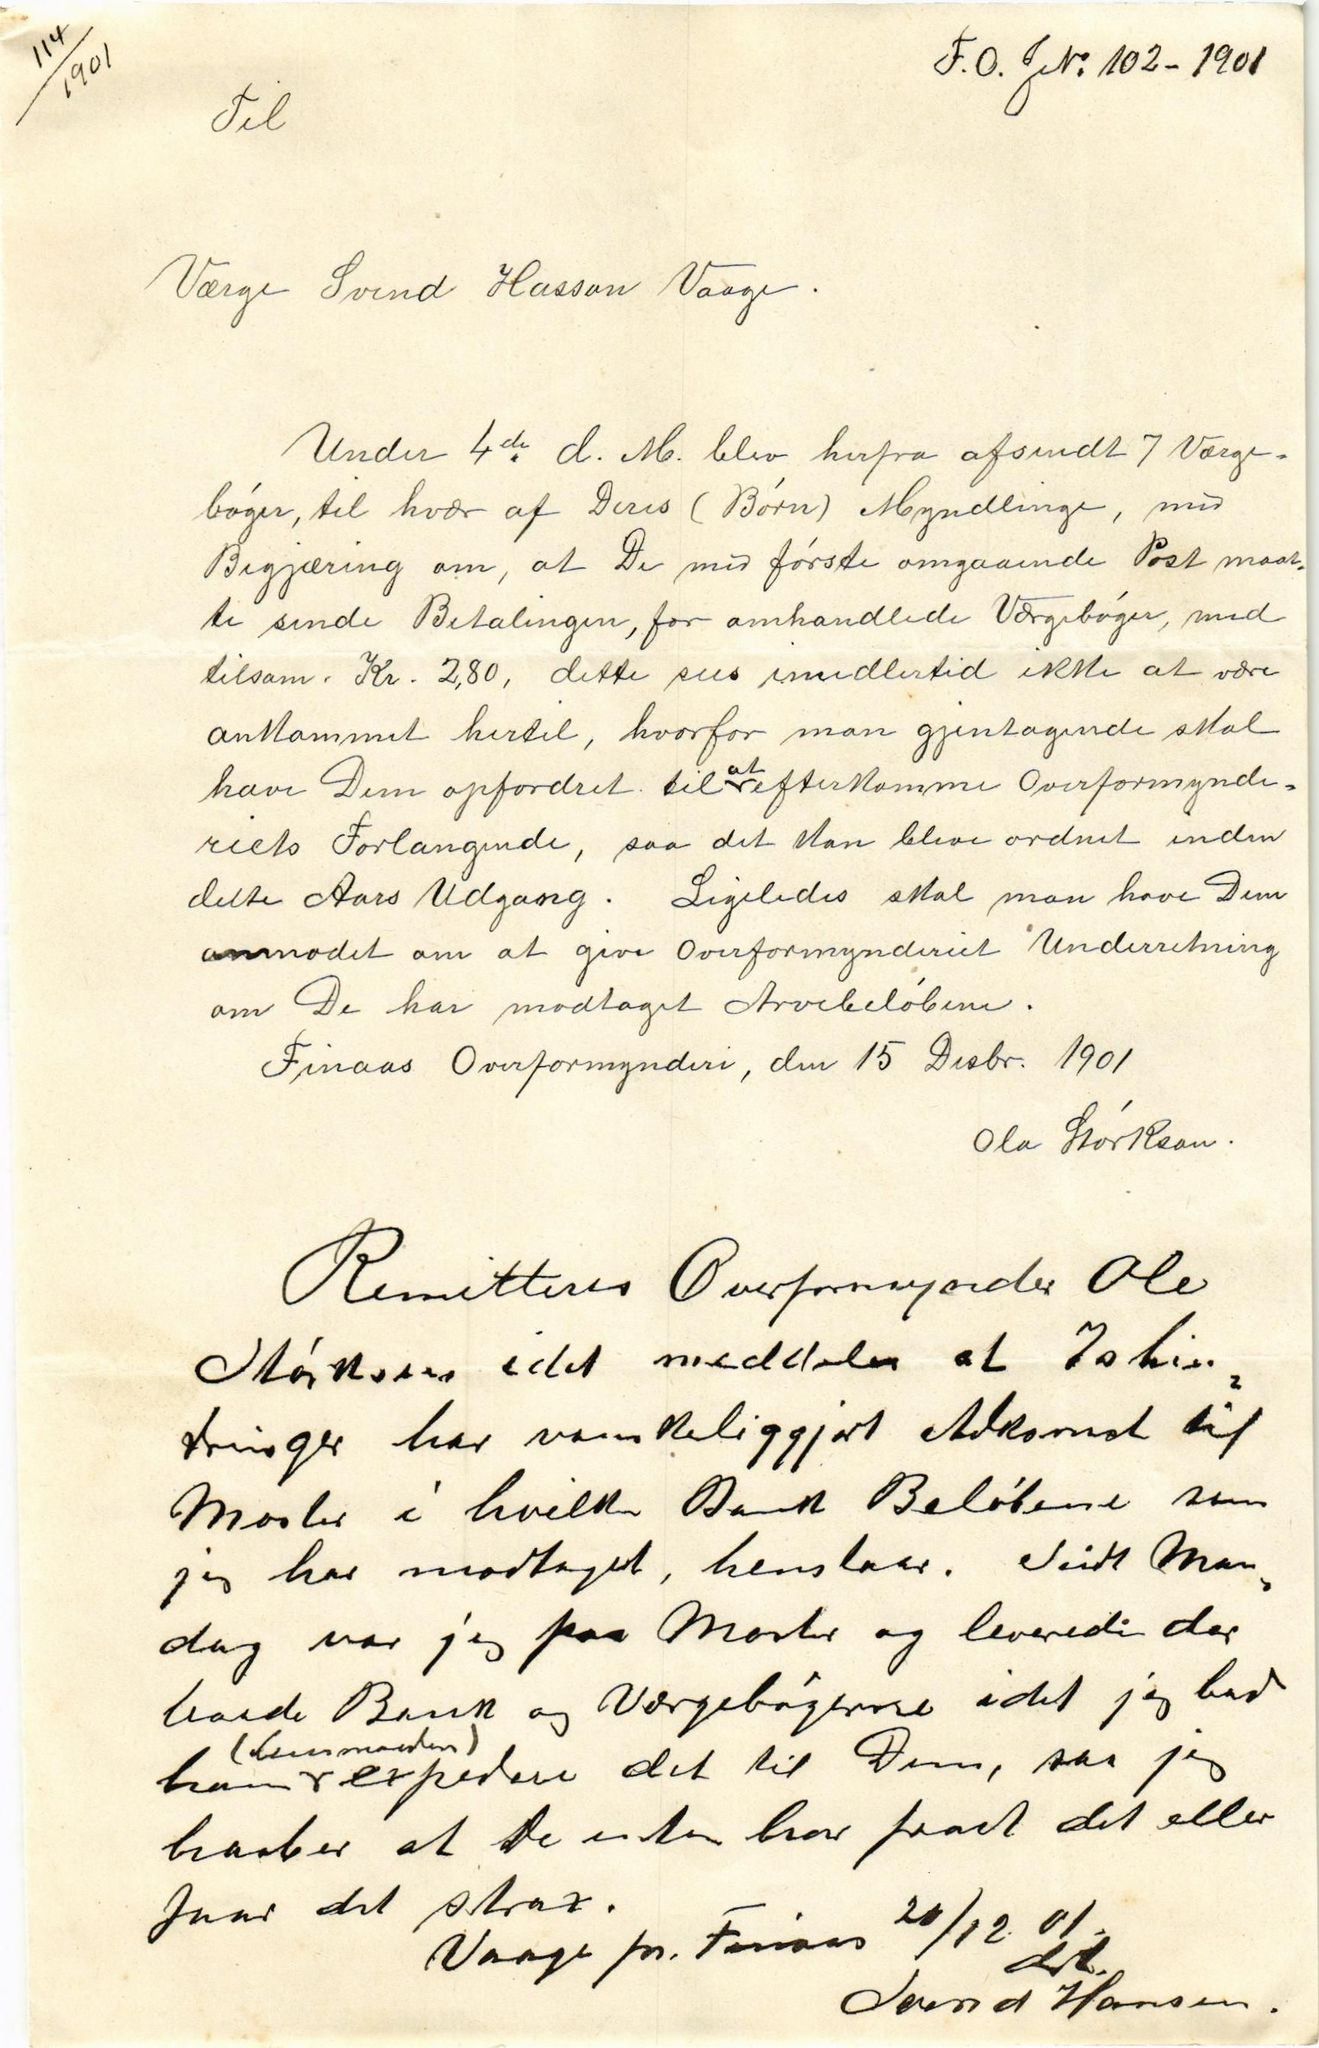 114/1901
F.O. J.№. 102 - 1901
Til
Værge Svend Hasson Vaage.
Under 4de. d. M. blev herfra afsendt 7 Værge-
bóger, til hvær af Deres (Bórn) Myndlinge, med
Begjæring om, at De med fórste omgaaende Post maat-
te sende Betalingen, for omhandlede Værgebóger, med
tilsam. Kr. 2,80, dette sees imidlertid ikke at være
ankommet hertil, hvorfor man gjentagende skal
have Dem opfordret til at efterkomme Overformynde-
riets Forlangende, saa det kan bleve ordnet inden
dette Aars Udgang. Ligeledes skal man have Dem
anmodet om at give Overformynderiet Underretning
om De har modtaget Arvebelóbene.
Finaas Overformynderi, den 15 Desbr. 1901
Ola Stórkson.
Remitteres Overformynder Ole
Stórksen idet meddeles at Ishin-
dringer har vanskeliggjort Adkomst til
Moster i hvilken Bank Belóbene som
jeg har modtaget, henstaar. Sidst Man-
dag var jeg paa Moster og leverede der
baade Bank og Værgebógerne idet jeg bad
ham (Lensmanden) expedere det til Dem, saa jeg
haaber at De enten har faaet det eller
faar det strax.
Vaage pr. Finaas 20/12 01.
Svend Hansen.